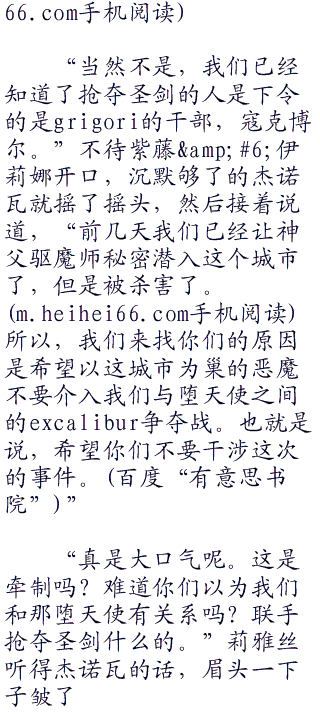 66.com手机阅读)
“当然不是，我们已经
知道了抢夺圣剑的人是下令
的是grigori的干部，寇克博
尔。”不待紫藤&amp;#6;伊
莉娜开口，沉默够了的杰诺
瓦就摇了摇头，然后接着说
道，“前几天我们已经让神
父驱魔师秘密潜入这个城市
了，但是被杀害了。
(m.heihei66.com手机阅读)
所以，我们来找你们的原因
是希望以这城市为巢的恶魔
不要介入我们与堕天使之间
的excalibur争夺战。也就是
说，希望你们不要干涉这次
的事件。(百度“有意思书
院”)”
“真是大口气呢。这是
牵制吗？难道你们以为我们
和那堕天使有关系吗？联手
抢夺圣剑什么的。”莉雅丝
听得杰诺瓦的话，眉头一下
子皱了